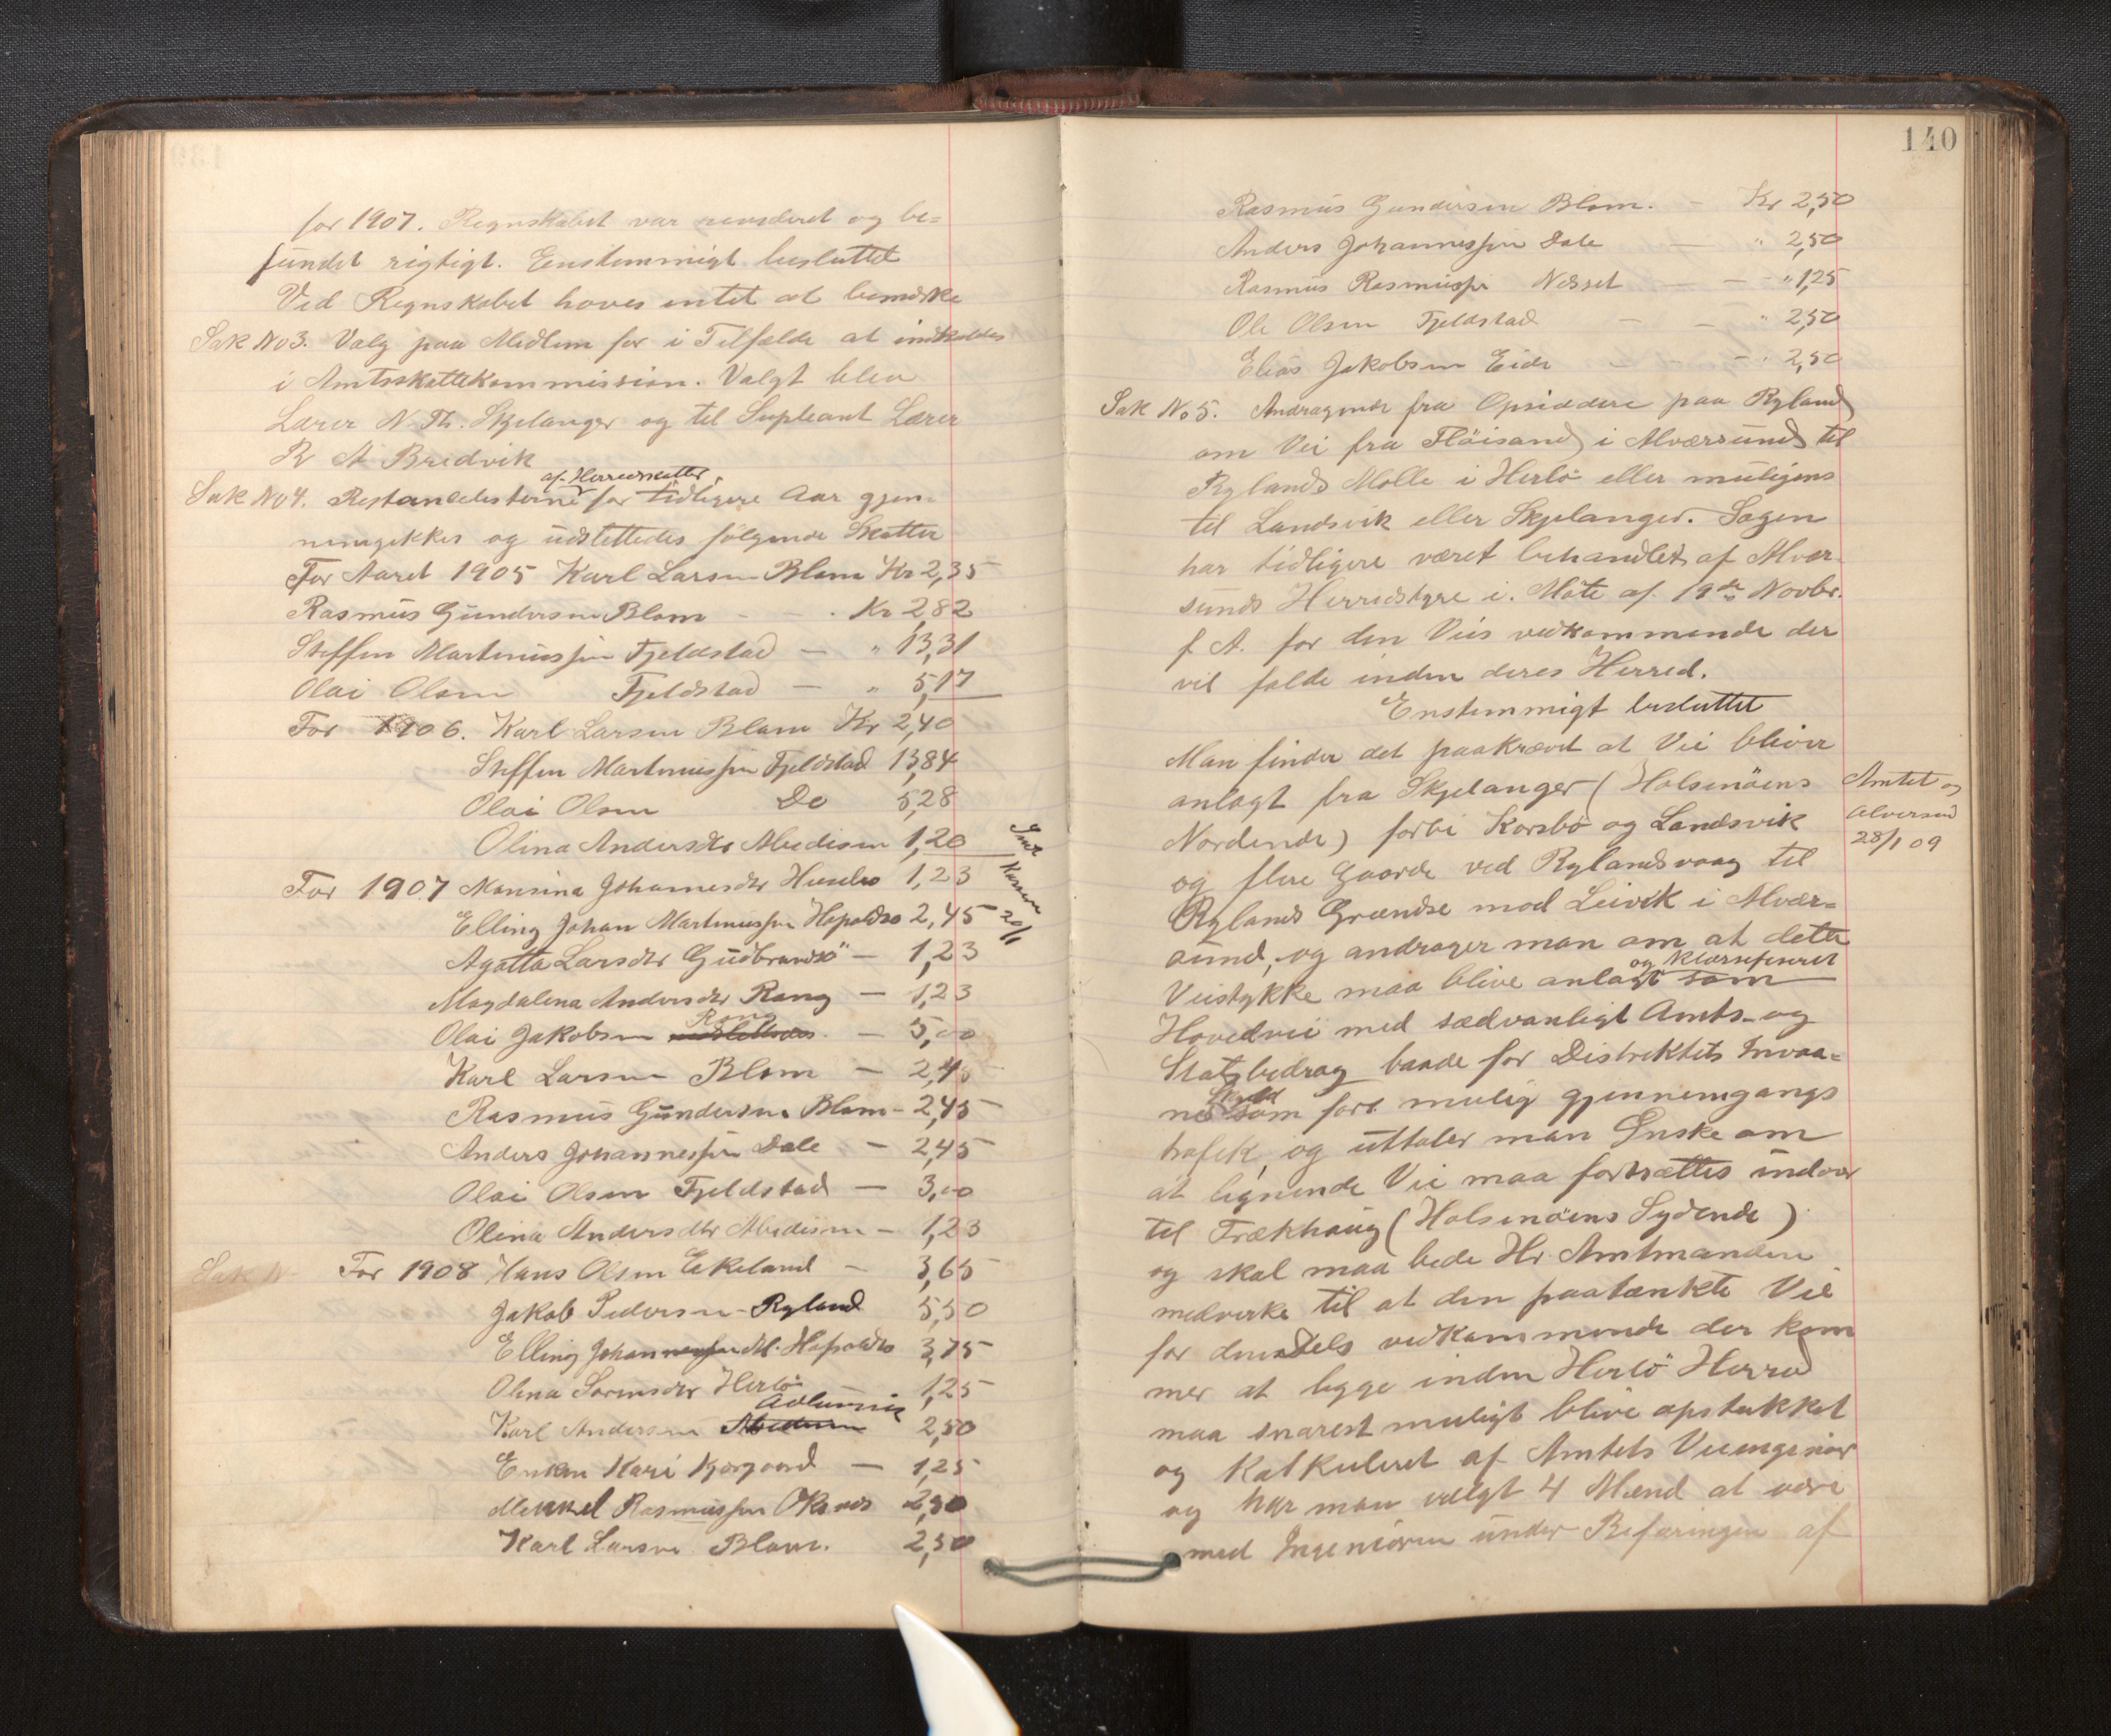 for 1907. Regnskabet var revideret og be=
fundet rigtigt. Enstemmigt besluttet
Ved Regnskabet haves intet at bemærke
Sak No 3. Valg paa Medlem for i Tilfælde at indkaldes
i Amtsskattekommission. Valgt blev
Lærer N. Th. Skjelanger og til Supleant Lærer
R A Bredvik
af Herredsskatter
Sak No 4. Restancelisterne for tidligere Aar gjen-
nemgikkes og udslettedes følgende Skatter
For Aaret 1905 Karl Larsen Blom Kr 2,35
Rasmus Gundersen Blom - - Kr 2,82
Steffen Martinussen Fjeldstad — " 13,31
Olai Olsen Fjeldstad — " 5,17
For 1906. Karl Larsen Blom Kr 2,40
Steffen Martinussen Fjeldstad 13,84
Olai Olsen Do 5,28
Olina Andersdtr Midisen 1,20
For 1907 Monsina Johannesdtr Husebø 1,23
Elling Johan Martinussen Hopoldsø 2,45
Agatta Larsdtr Gudbrandsö — 1,23
Magdalena Andersdtr Rong — 1,23
Rong
Olai Jakobsen — 5,00
Karl Larsen Blom — 2,45
Rasmus Gundersen Blom - 2,45
Anders Johannessen Dale — 2,45
Olai Olsen Fjeldstad — 3,00
Olina Andersdtr Midisen — 1,23
Sak N
For 1908 Hans Olsen Eikeland — 3,65
Jakob Pedersen Ryland 5,50
Elling Johannessen M. Hopoldsø 3,75
Olina Sørensdtr Herlö — 1,25
Karl Andersen 2,50
Enken Kari Kjærgaard — 1,25
Mikkel Rasmussen Oksnes 2,50
Karl Larsen Blom. 2,50
20/1
140
Rasmus Gundersen Blom. - Kr 2,50
Anders Johannessen Dale — " 2,50
Rasmus Rasmussen Nesset — - " 1,25
Ole Olsen Fjeldstad - - " 2,50
Elias Jakobsen Eide - - " 2,50
Sak No 5. Andragende fra Opsiddere paa Ryland
om Vei fra Flöisand i Alværsund til
Rylands Molle i Herlö eller muligens
til Landsvik eller Skjelanger. Sagen
har tidligere været behandlet af Alvær-
sunds Herredstyre i. Möte af 19de Novbr.
f. A. for den Veis vedkommende der
vil falde inden deres Herred.
Enstemmigt besluttet
Man finder det paakrævet at Vei bliver
anlagt fra Skjelanger (Holsenöens
Nordende) forbi Korsbö og Landsvik
og flere Gaarde ved Rylandsvaag til
Rylands Grændse mod Leivik i Alvær=
sund, og andrager man om at dette
og klassificeret
Veistykke maa blive anlagt som
Hovedvei med sædvanligt Amts- og
Statsbedrag baade for Distriktets Invaa=
ne som for mulig gjennemgangs
trafik, og uttaler man Ønske om
at lignende Vei maa fortsættes indover
til Frækhaug (Holsenöens Sydende)
og skal maa bede Hr. Amtmanden
medvirke til at den paatænkte Vei
for den dels vedkommende der kom
mer at ligge inden Herlö Herred
maa snarest muligt blive opstukket
og kalkuleret af Amtets Veiingeniør
og har man valgt 4 Mænd at være
med Ingeniøren under Befaringen af
Amtet og
Alversund
28/1 09